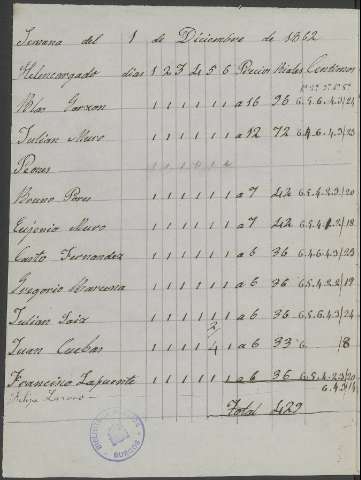 Semana del 1 de Diciembre de 1862
Helencargado dias 1 2 3 4 5 6 Precios Reales Centimos
Blas Garzon 1 1 1 1 1 1 a 16 96 6.5.6.4.3/24
Julian Muro 1 1 1 1 1 1 a 12 72 6.4.6.4.3/23
Peones
Bruno Pares 1 1 1 1 1 1 a 7 42 6.5.4.2.3/20
Eujenio Muro 1 1 1 1 1 1 a 7 42 6.5.4.1.2/18
Casto Fernandez 1 1 1 1 1 1 a 6 36 6.4.6.4.3/23
Gregorio 1 1 1 1 1 1 a 6 36 6.5.4.2.2/19
Julian Saiz 1 1 1 1 1 1 a 6 36 6.5.6.4.3/24
Juan Cuebas 1 1 1 1 1 3/4 a 6 33 6 /8
Francisco Lapuente 1 1 1 1 1 1 a 6 36 6.5.4.2.3/20
Felipe 6.4.3/4
Total 429
BIBLIOTECA
BURGOS